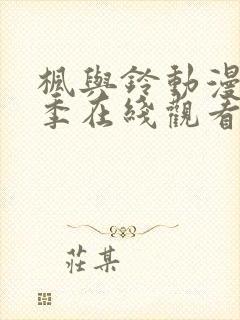 楓與鈴動漫
季在綫觀看
莊某